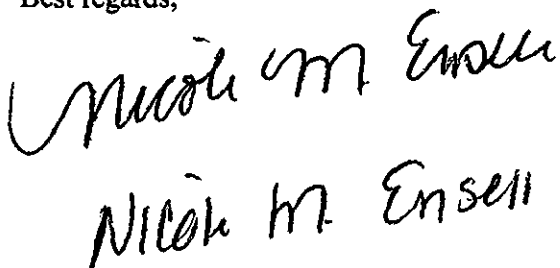 Best regards,
Nicole M Ensell
Nicole M. Ensell